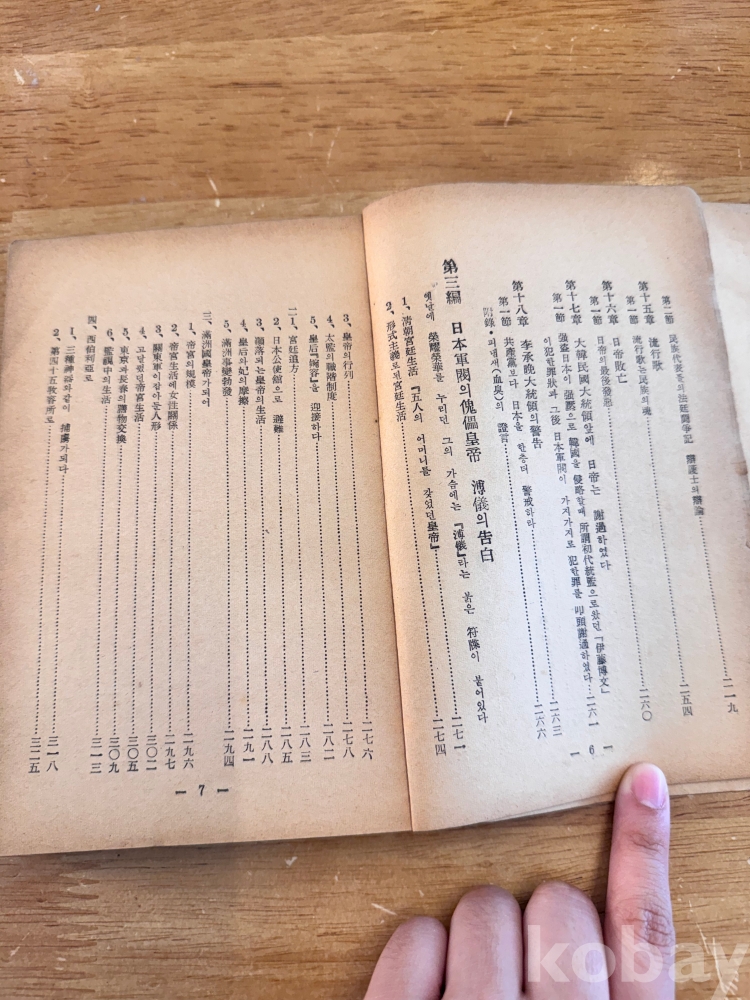 第二節 民族代表들의 法廷鬪爭記 辯護士의 辯論……二一九
第十五章 流行歌
第一節 流行歌는 民族의 魂……二五四
第十六章 日帝敗亡
第一節 日帝의 最後發惡……二六〇
第十七章 大韓民國大統領앞에 日帝는 謝過하였다
第一節 强盜日本이 强壓으로 韓國을 侵略할때 所謂初代統監으로왔던 「伊藤博文」
이 犯한罪狀과 그後 日本軍閥이 가지가지로 犯한罪를 叩頭謝過하였다……二六一
第十八章 李承晩大統領의警告
第一節 共產黨보다 日本을 한층더 警戒하라……二六三
附錄・피냄새(血臭)의 證言……二六六
第三編 日本軍閥의傀儡皇帝 溥儀의告白
옛날에 榮耀榮華를 누리던 그의 가슴에는 『溥儀』라는 붉은 符牒이 붙어있다
1、淸朝宮廷生活 『五人의 어머니를 갖었던皇帝』……二七一
2、形式主義로된宮廷生活……二七四
— 6 —
3、皇帝의行列……二七六
4、太監의職階制度……二七八
5、皇后『婉容』을 迎接하다……二八二
二 1、宮廷追方……二八三
2、日本公使館으로 避難……二八五
3、墮落되는皇帝의生活……二八八
4、皇后와妃의摩擦……二九一
5、滿洲事變勃發……二九四
三、滿洲國皇帝가되어
1、帝宮의規模……二九六
2、帝宮生活에女性關係……二九七
3、關東軍이잡아들人形……三〇二
4、고달펐던帝宮生活……三〇五
5、東京과長春의贈物交換……三〇九
6、監視中의生活……三一三
四、西伯利亞로
1、三種神器와같이 捕虜가되다……三一八
2、第四十五收容所로……三二五
— 7 —
kobay